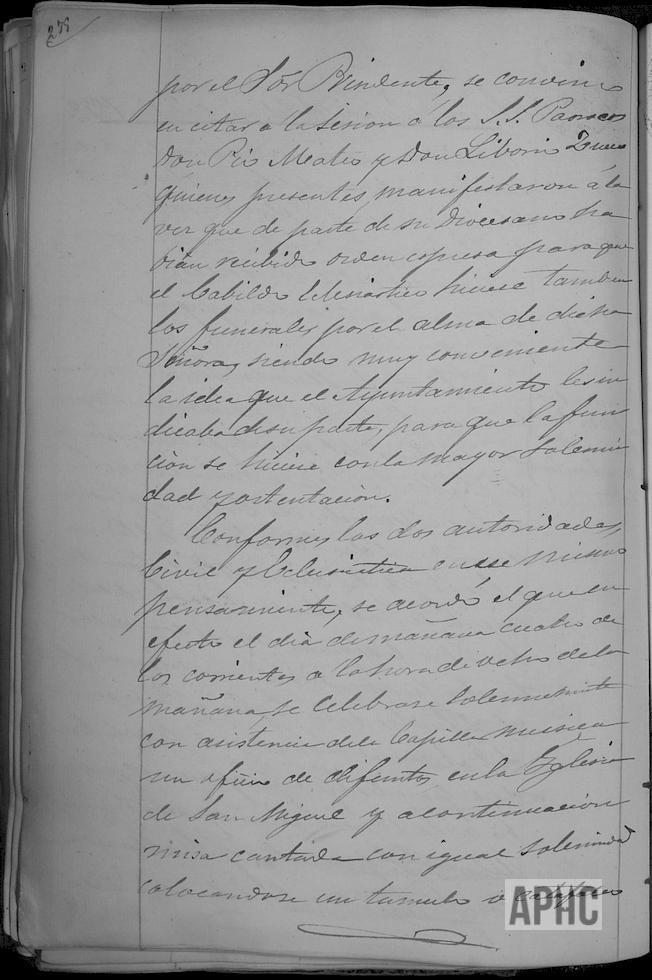 278
por el Sor Presidente, se convino
en citar a la sesion á los S.S. Parrocos
Don Pio Mateo y Don Liborio
quienes presentes manifestaron á la
vez que de parte de su Diocesano ha
bian recibido orden espresa para que
el Cabildo Eclesiastico hiciese tambien
los funerales por el alma de dicha
Señora, siendo muy conveniente
la idea que el Ayuntamiento les in
dicaba de su parte, para que la fun
cion se hiciese con la mayor solemni
dad y ostentacion.
Conformes las dos autoridades
Civil y Eclesiastica en ese mismo
pensamiento, se acordó el que en
efecto el dia de mañana cuatro de
los corrientes a la hora de ocho de la
mañana, se celebrase solemnemente
con asistencia de la Capilla musica
un oficio de difuntos en la Yglesia
de San Miguel y a continuacion
misa cantada con igual solemnidad
colocandose un tumulo o catafalco
APHC